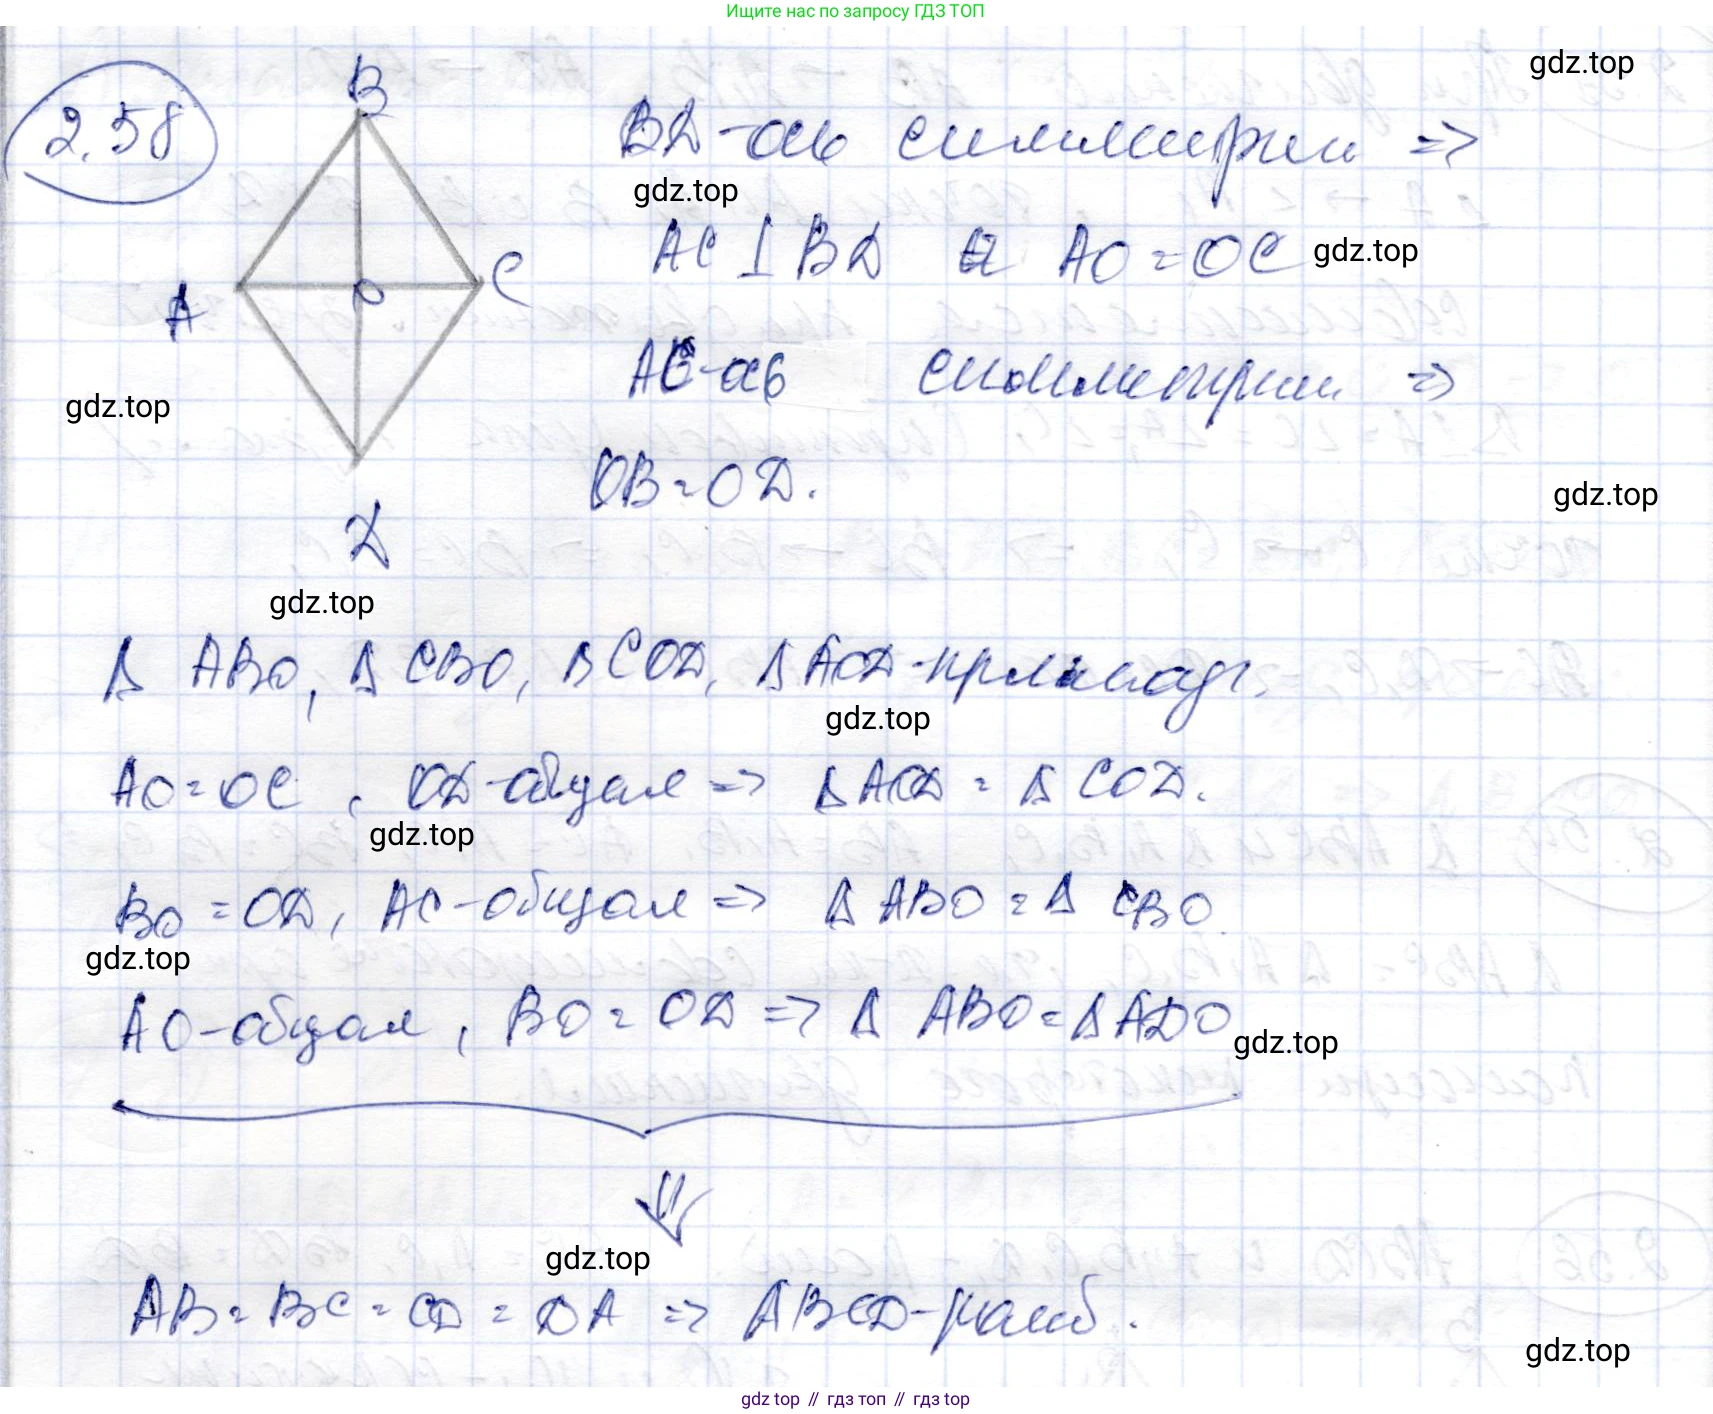 Ищите нас по запросу ГДЗ ТОП
gdz.top
2.58
B
BD-ось симметрии =>
gdz.top
AC ⊥ BD и AO = OC
gdz.top
A
O
C
AC-ось симметрии =>
gdz.top
OB = OD.
gdz.top
D
gdz.top
Δ ABO, Δ CBO, Δ COD, Δ AOD-
gdz.top
AO = OC, OD-общая => Δ AOD = Δ COD.
gdz.top
BO = OD, AC-общая => Δ ABO = Δ CBO.
gdz.top
AO-общая, BO = OD => Δ ABO = Δ ADO
gdz.top
gdz.top
AB = BC = CD = DA => ABCD-ромб.
gdz.top
gdz top // гдз топ // гдз top